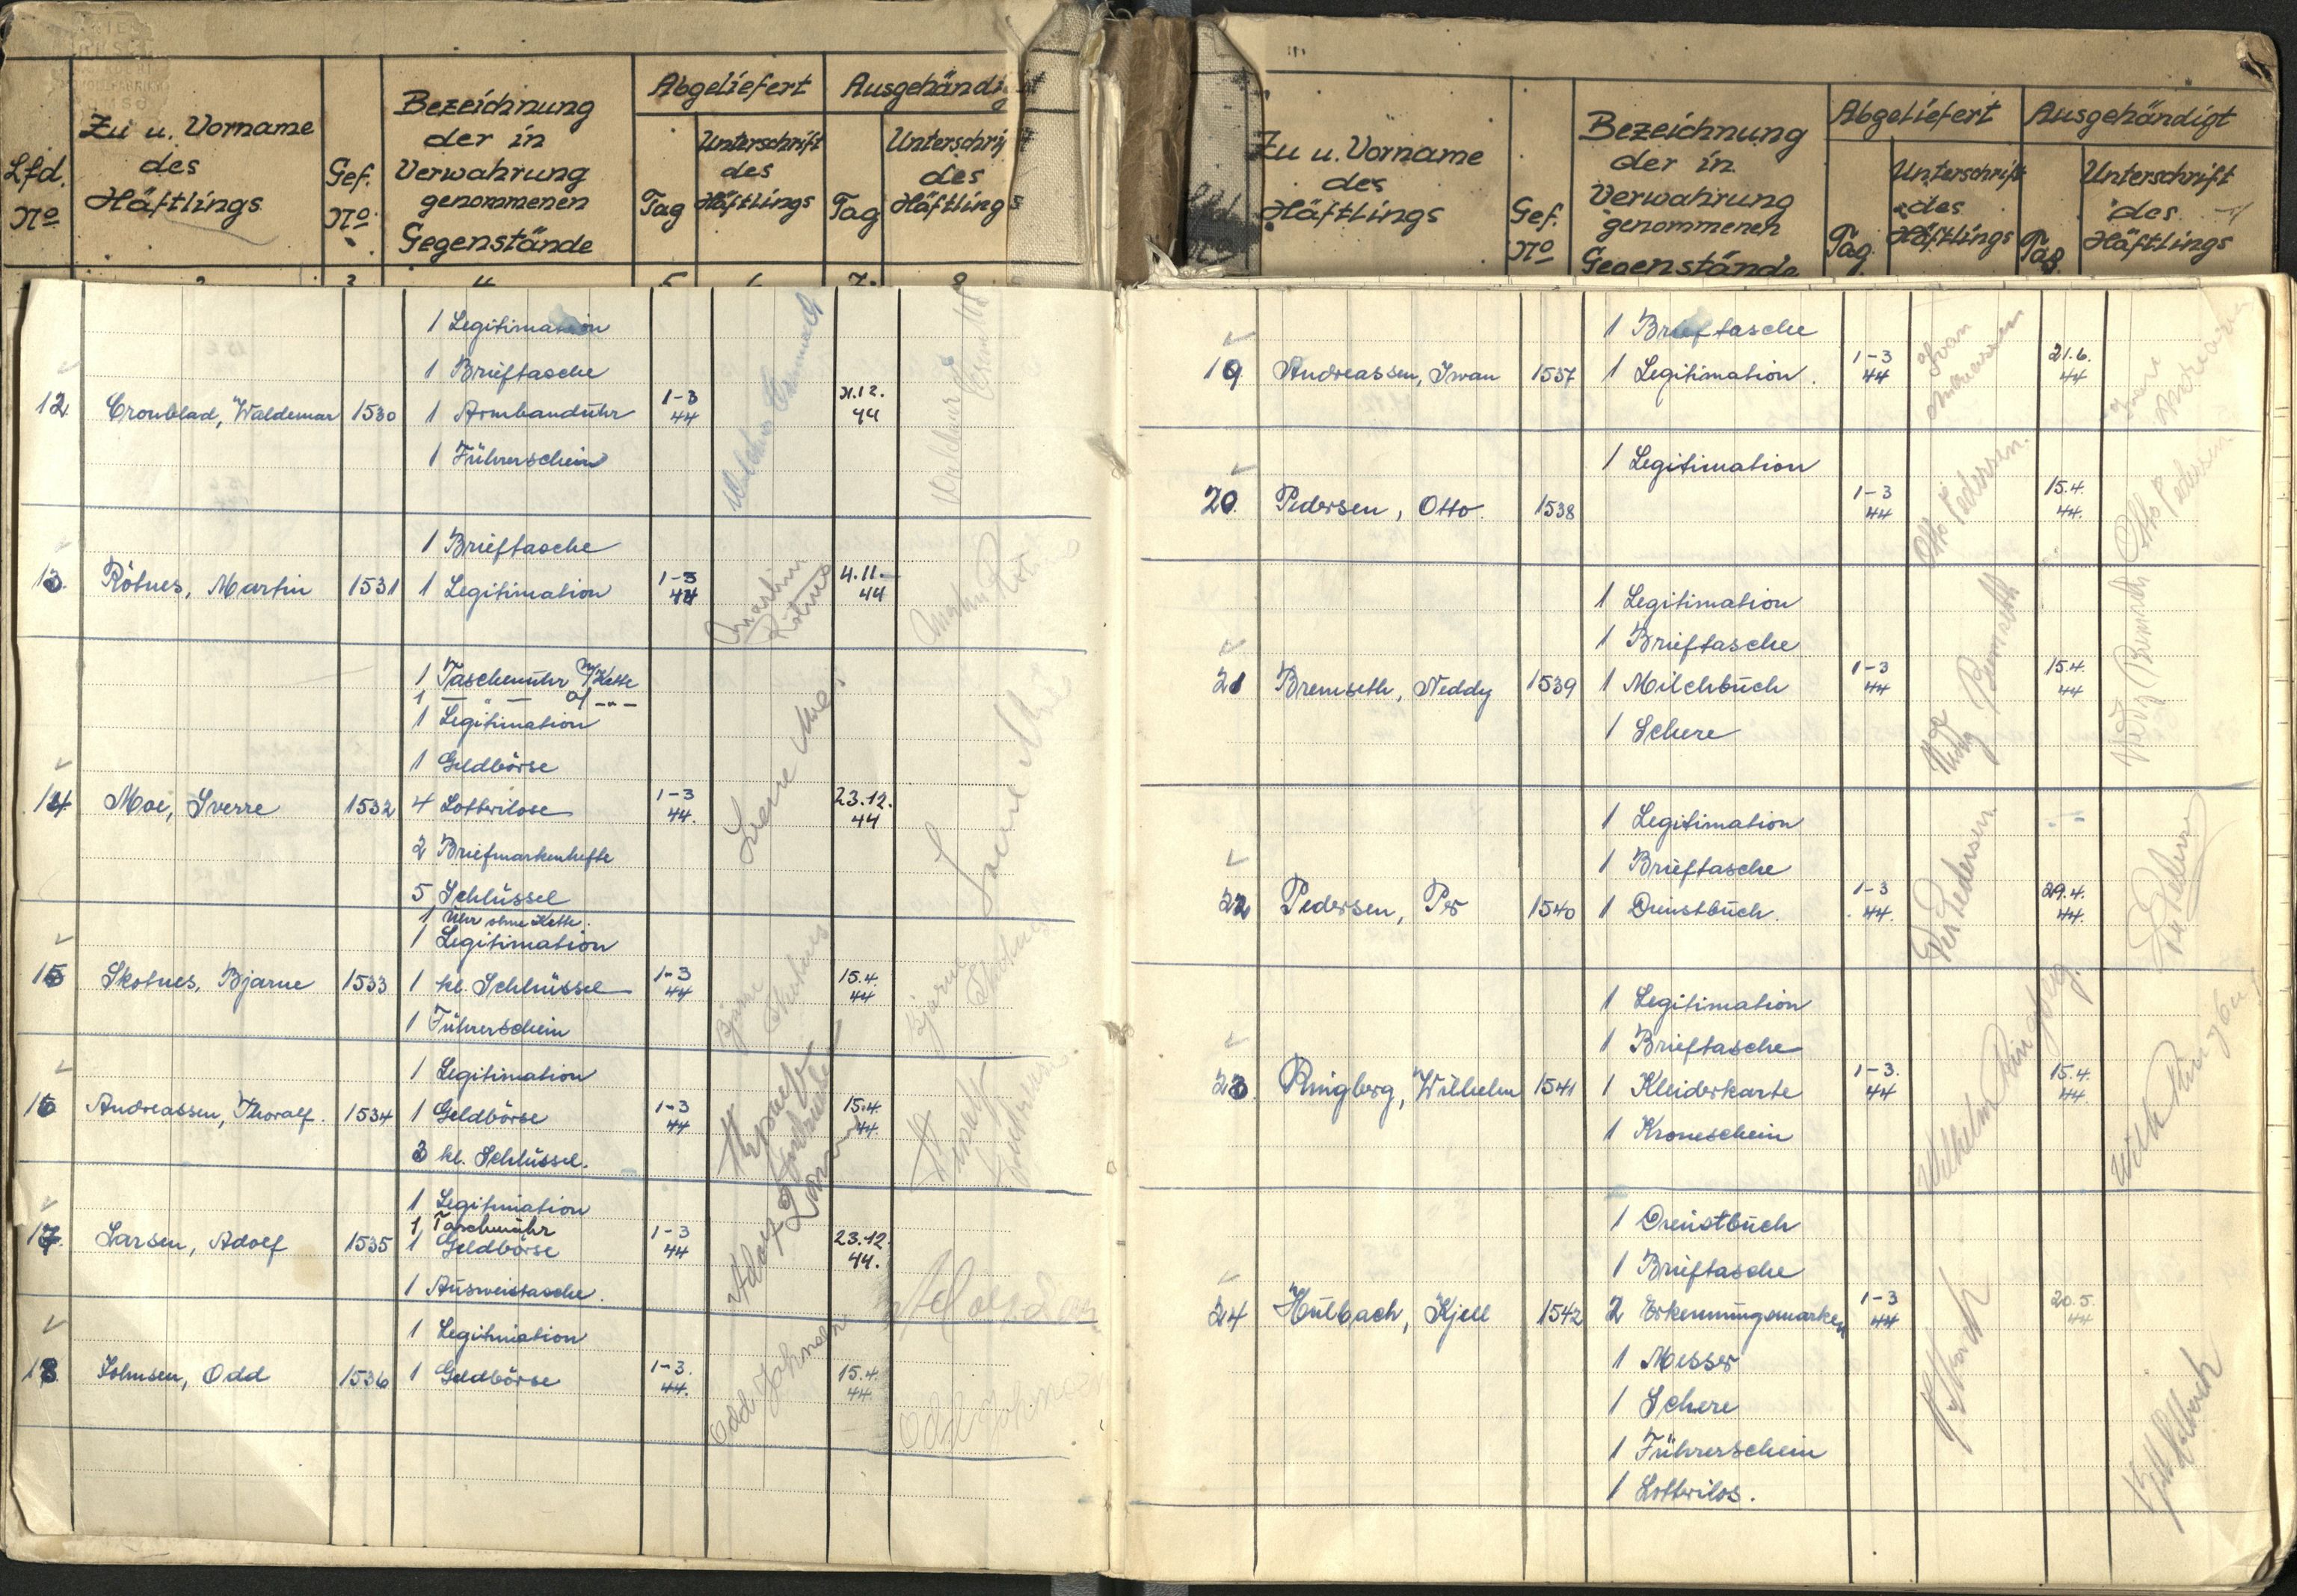 Lfd. No
Zu u. Vorname des Häftlings
Gef. No
Bezeichnung der in Verwahrung genommenen Gegenstände
Abgeliefert
Tag
Unterschrift des Häftlings
Ausgehändigt
Tag
Unterschrift des Häftlings
1 Legitimation
1 Brieftasche
12 Cronblad, Waldemar 1530 1 Armbanduhr 1-3 44 21.12. 44
1 Führerschein
1 Brieftasche
13. Rötnes, Martin 1531 1 Legitimation 1-3 44 Martin Rötnes 4.11. 44
1 Taschenuhr m/Kette
1 — " — o/ ---
1 Legitimation
1 Geldbörse
14 Moe, Sverre 1532 4 Lotterilose 1-3 44. Sverre Moe 23.12. 44 Sverre Moe
2 Briefmarkenhefte
5 Schlüssel
1 Uhr ohne Kette.
1 Legitimation
15 Skotnes, Bjarne 1533 1 kl. Schlüssel 1-3 44 Bjarne Skotnes 15.4. 44 Bjarne Skotnes
1 Führerschein
1 Legitimation
16 Andreassen, Thoralf. 1534 1 Geldbörse 1-3 44 15.4. 44
3 kl. Schlüssel.
1 Legitimation
1 Taschenuhr
17. Larsen, Adolf 1535 1 Geldbörse 1-3 44 Adolf Larsen 23.12. 44. Adolf Lar
1 Ausweistasche.
1 Legitimation
18 Johnsen, Odd 1536 1 Geldbörse 1-3. 44. Odd Johnsen 15.4. 44. Odd Johnsen
Zu u. Vorname des Häftlings
Gef. No
Bezeichnung der in Verwahrung genommenen Gegenstände
Abgeliefert
Tag
Unterschrift des Häftlings
Ausgehändigt
Tag
Unterschrift des Häftlings
1 Brieftasche
19 Andreassen, Iwan 1537 1 Legitimation. 1-3 44 Ivan Andreassen 21.6. 44 Ivan Andreassen
1 Legitimation
20. Pedersen, Otto. 1538 1-3 44 Otto Pedersen. 15.4. 44. Otto Pedersen
1 Legitimation
1 Brieftasche
21 Bremseth, Neddy 1539 1 Milchbuch 1-3 44 15.4. 44 Neddy Bremseth
1 Schere
1 Legitimation
1 Brieftasche
22 Pedersen, Per 1540 1 Dienstbuch. 1-3 44. Per Pedersen. 29.4. 44.
1 Legitimation
1 Brieftasche
23 Ringberg, Wilhelm 1541 1 Kleiderkarte 1-3. 44 Wilhelm Ringberg. 15.4. 44. Wilh Ringberg
1 Kroneschein
1 Dienstbuch
1 Brieftasche
24 Hülbach, Kjell 1542 2 Erkennungsmarken 1-3 44 20.5. 44
1 Messer
1 Schere
1 Führerschein
1 Lotterilos.